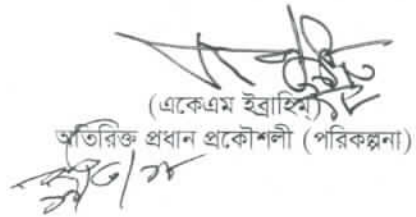 (একেএম ইব্রাহিম)
অতিরিক্ত প্রধান প্রকৌশলী (পরিকল্পনা)